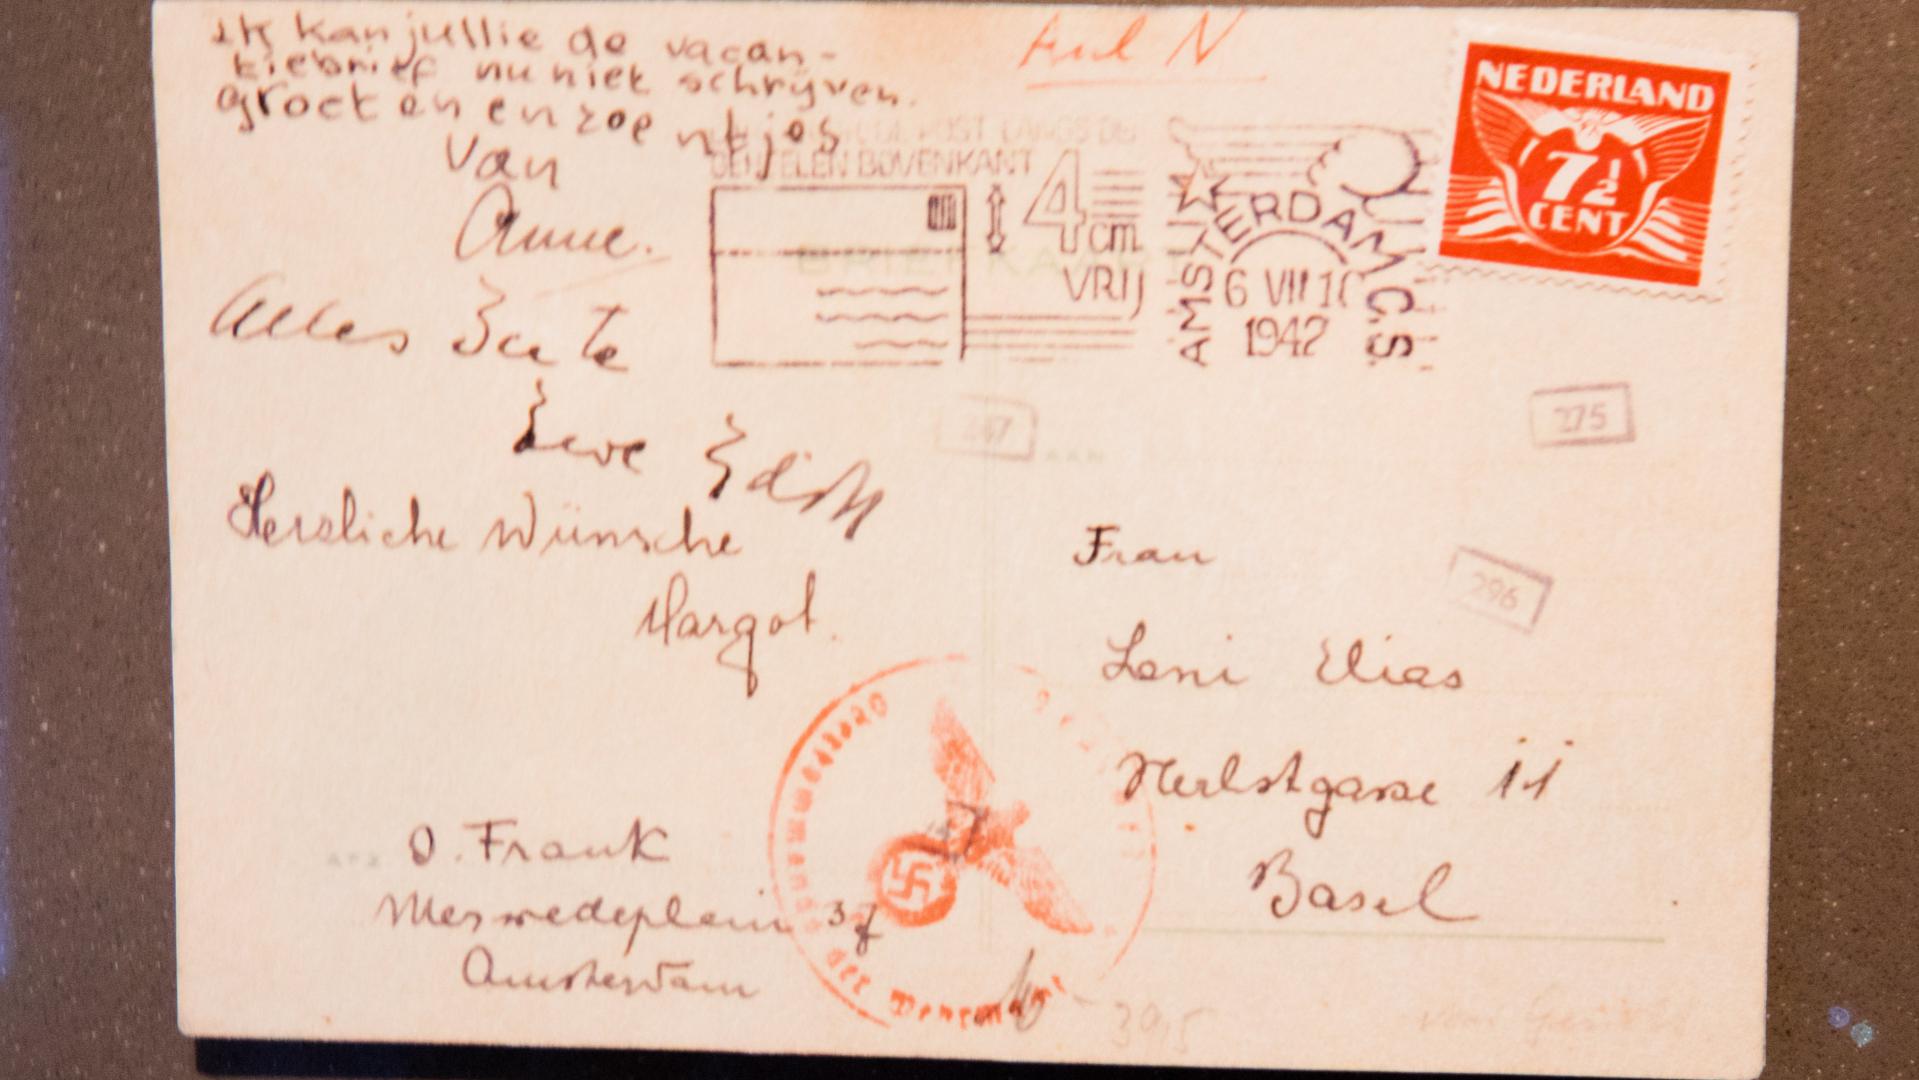 ik kan jullie de vacan-
tiebrief nu niet schrijven.
groeten en zoentjes
van
Anne.
Alles Gute
Eure Edith
Herzliche Wünsche
Margot.
O. Frank
Merwedeplein 37
Amsterdam
POST LANGS DE
BOVENKANT
4 cm
VRIJ
BRIEFKAART
AMSTERDAM C.S.
6 VII 1
1942
NEDERLAND
7½
CENT
275
AAN
296
Frau
Leni Elias
Herbstgasse 11
Basel
der Wehrmacht
395